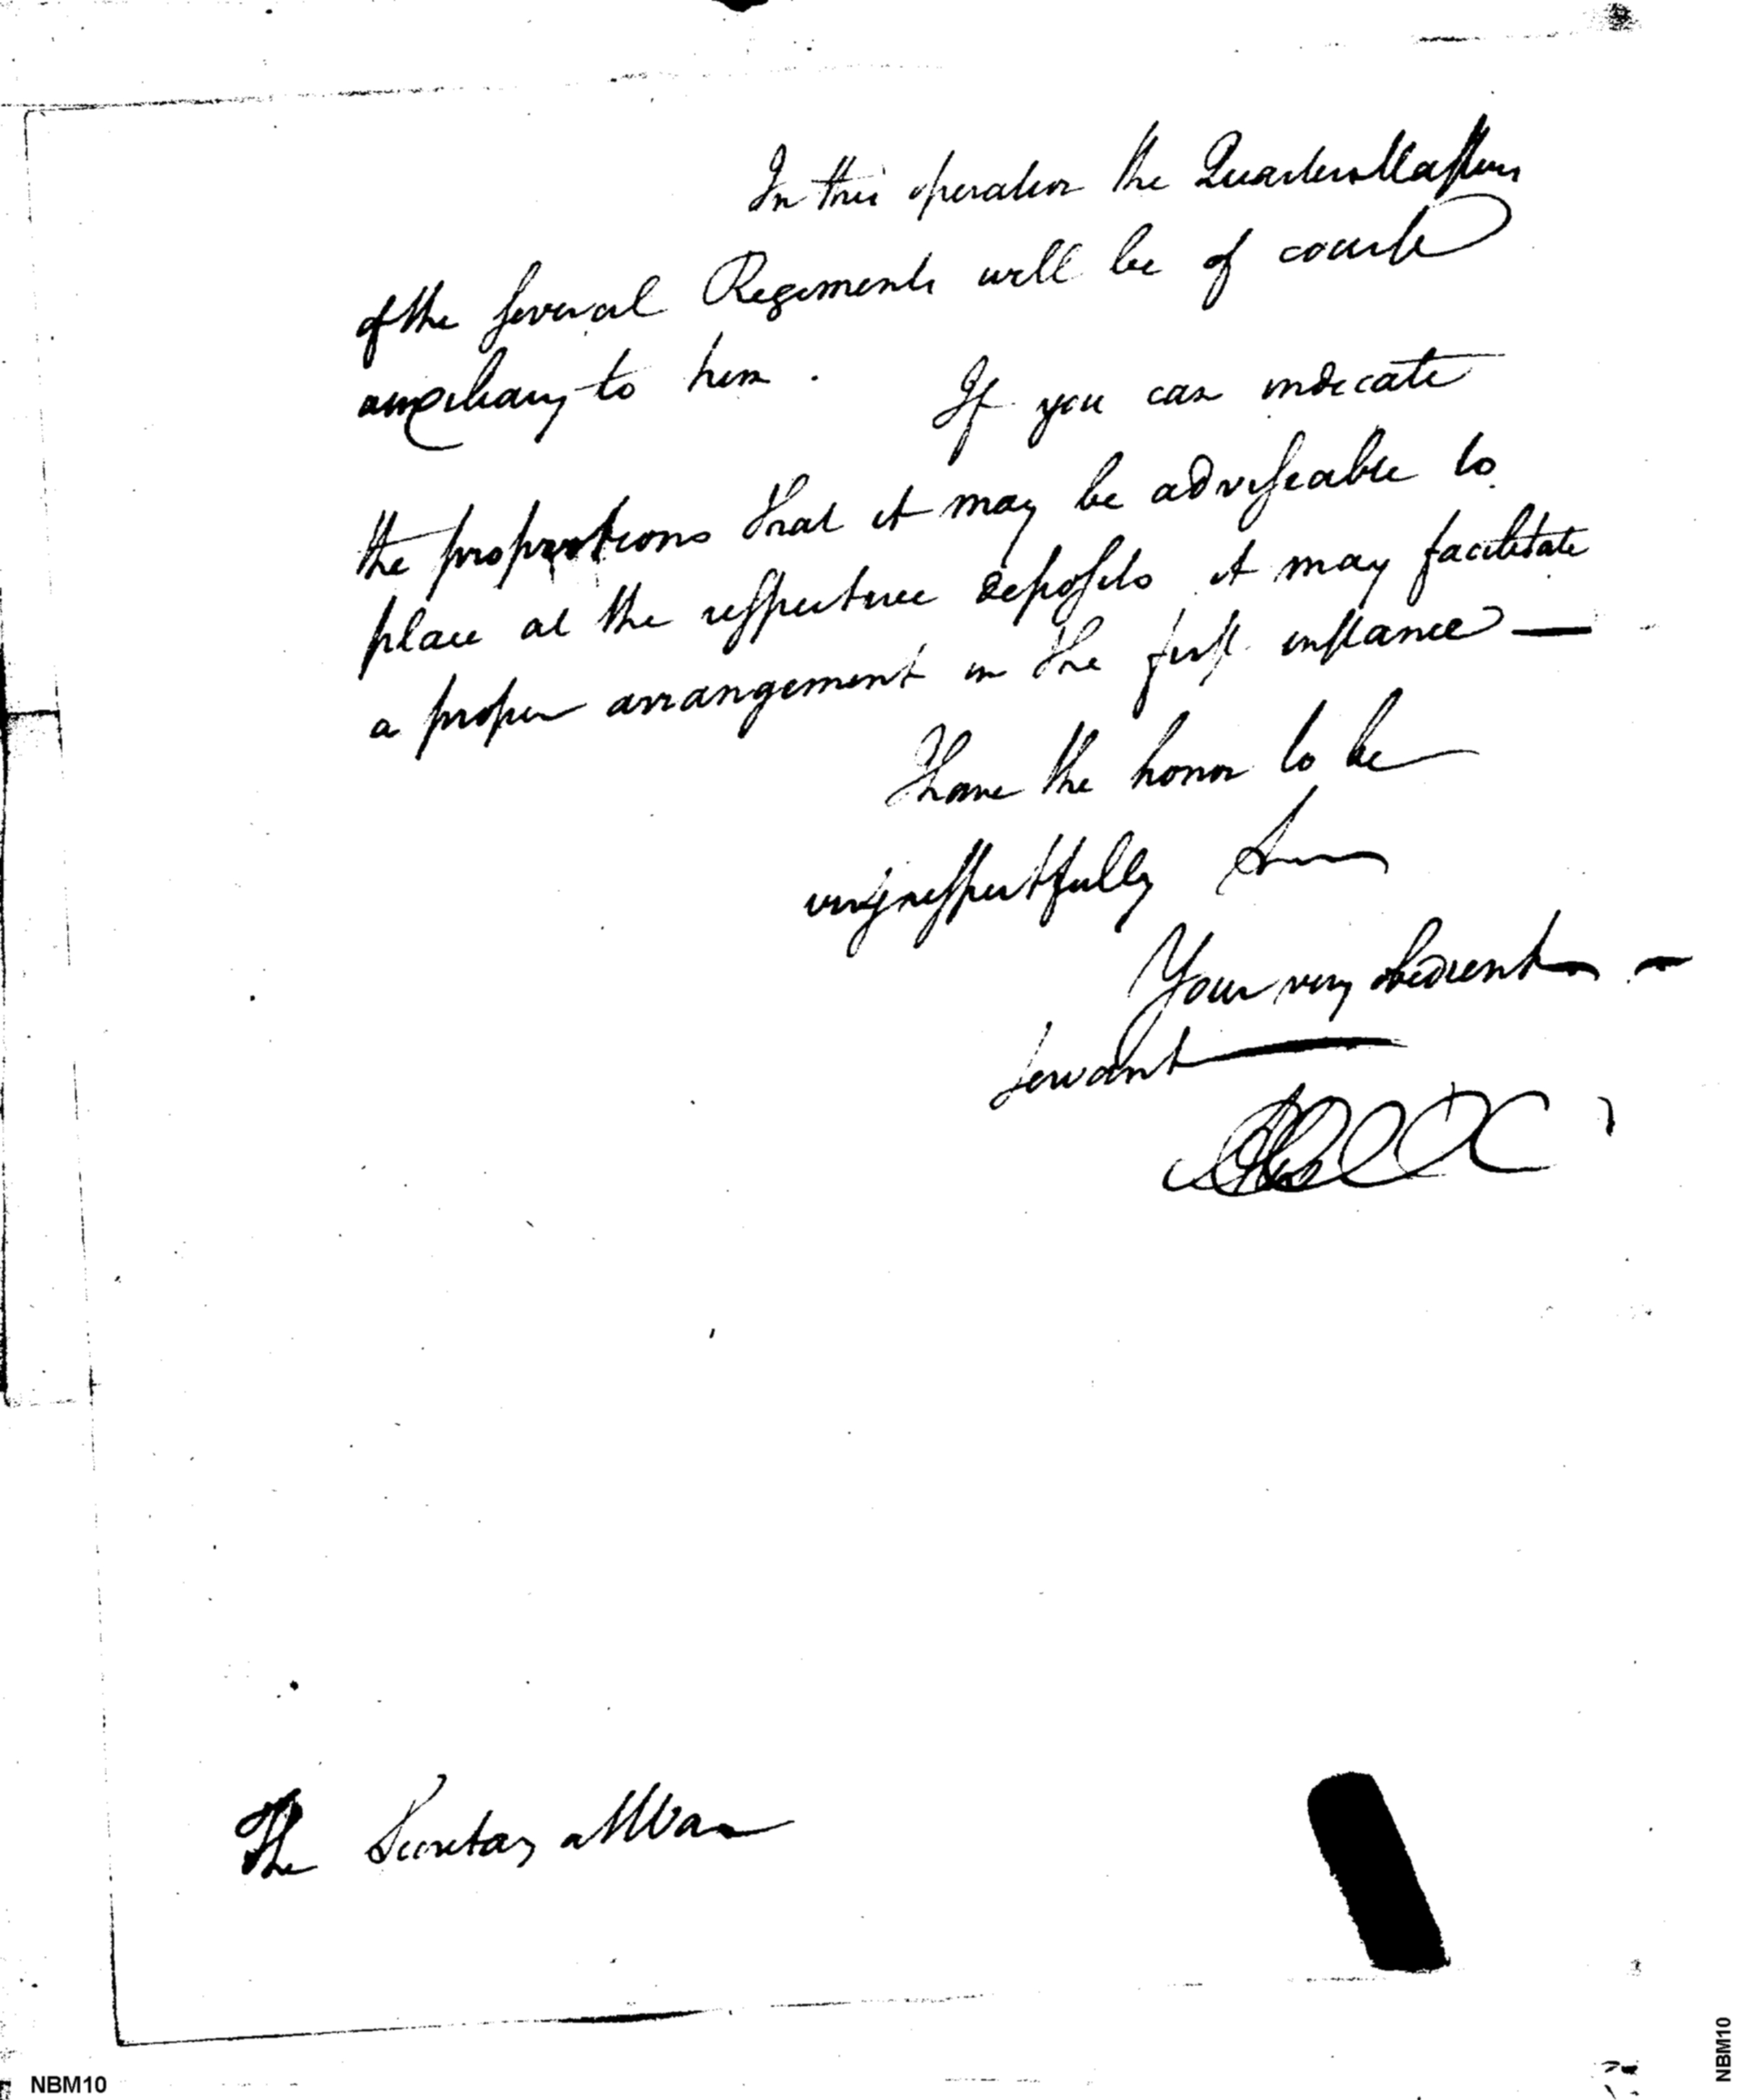 In this operation the QuarterMasters
of the several Regiments will be of course
auxiliary to him. If you can indicate
the proportions that it may be adviseable to
place at the respective deposits it may facilitate
a proper arrangement in the first instance —
I have the honor to be
very respectfully Sir
Your very obedient —
servant
The Secretary of War
NBM10
NBM10